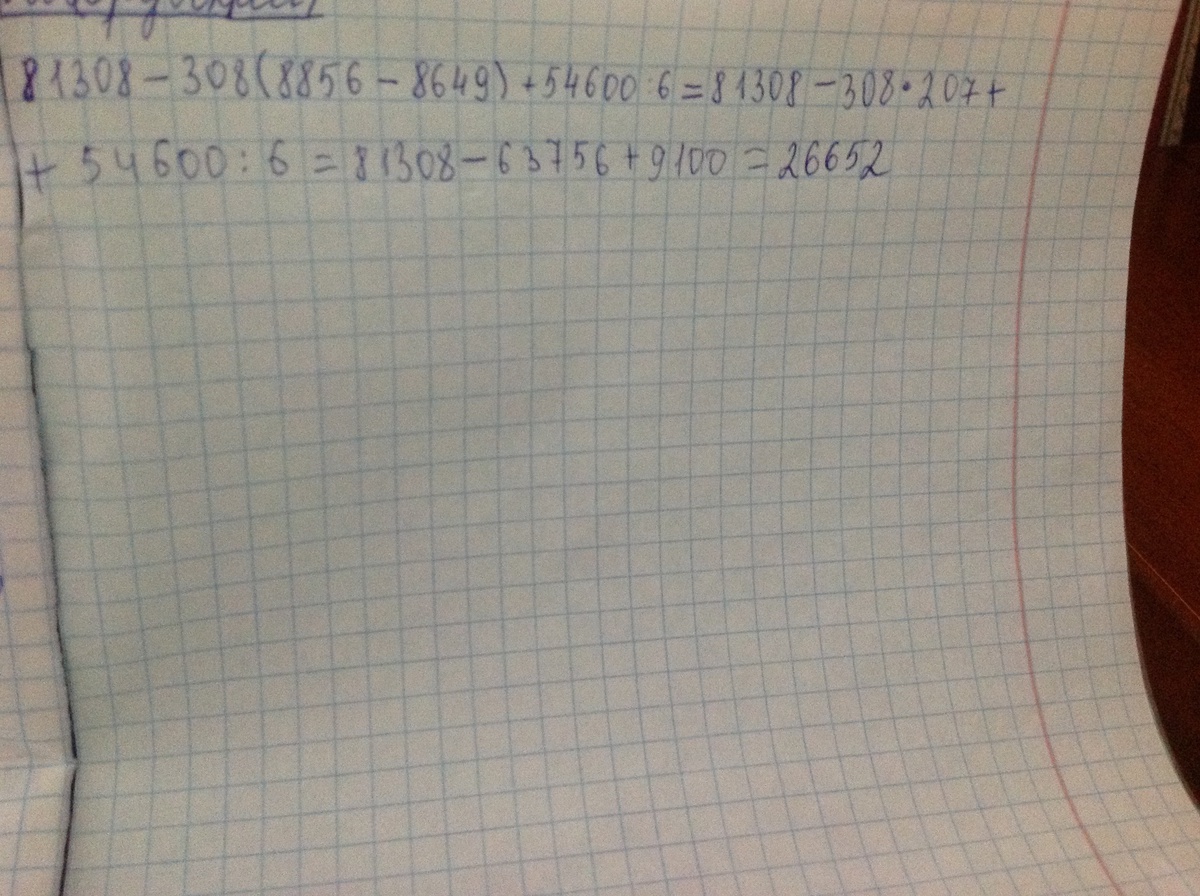 81308 - 308(8856 - 8649) + 54600 : 6 = 81308 - 308 · 207 +
+ 54600 : 6 = 81308 - 63756 + 9100 = 26652